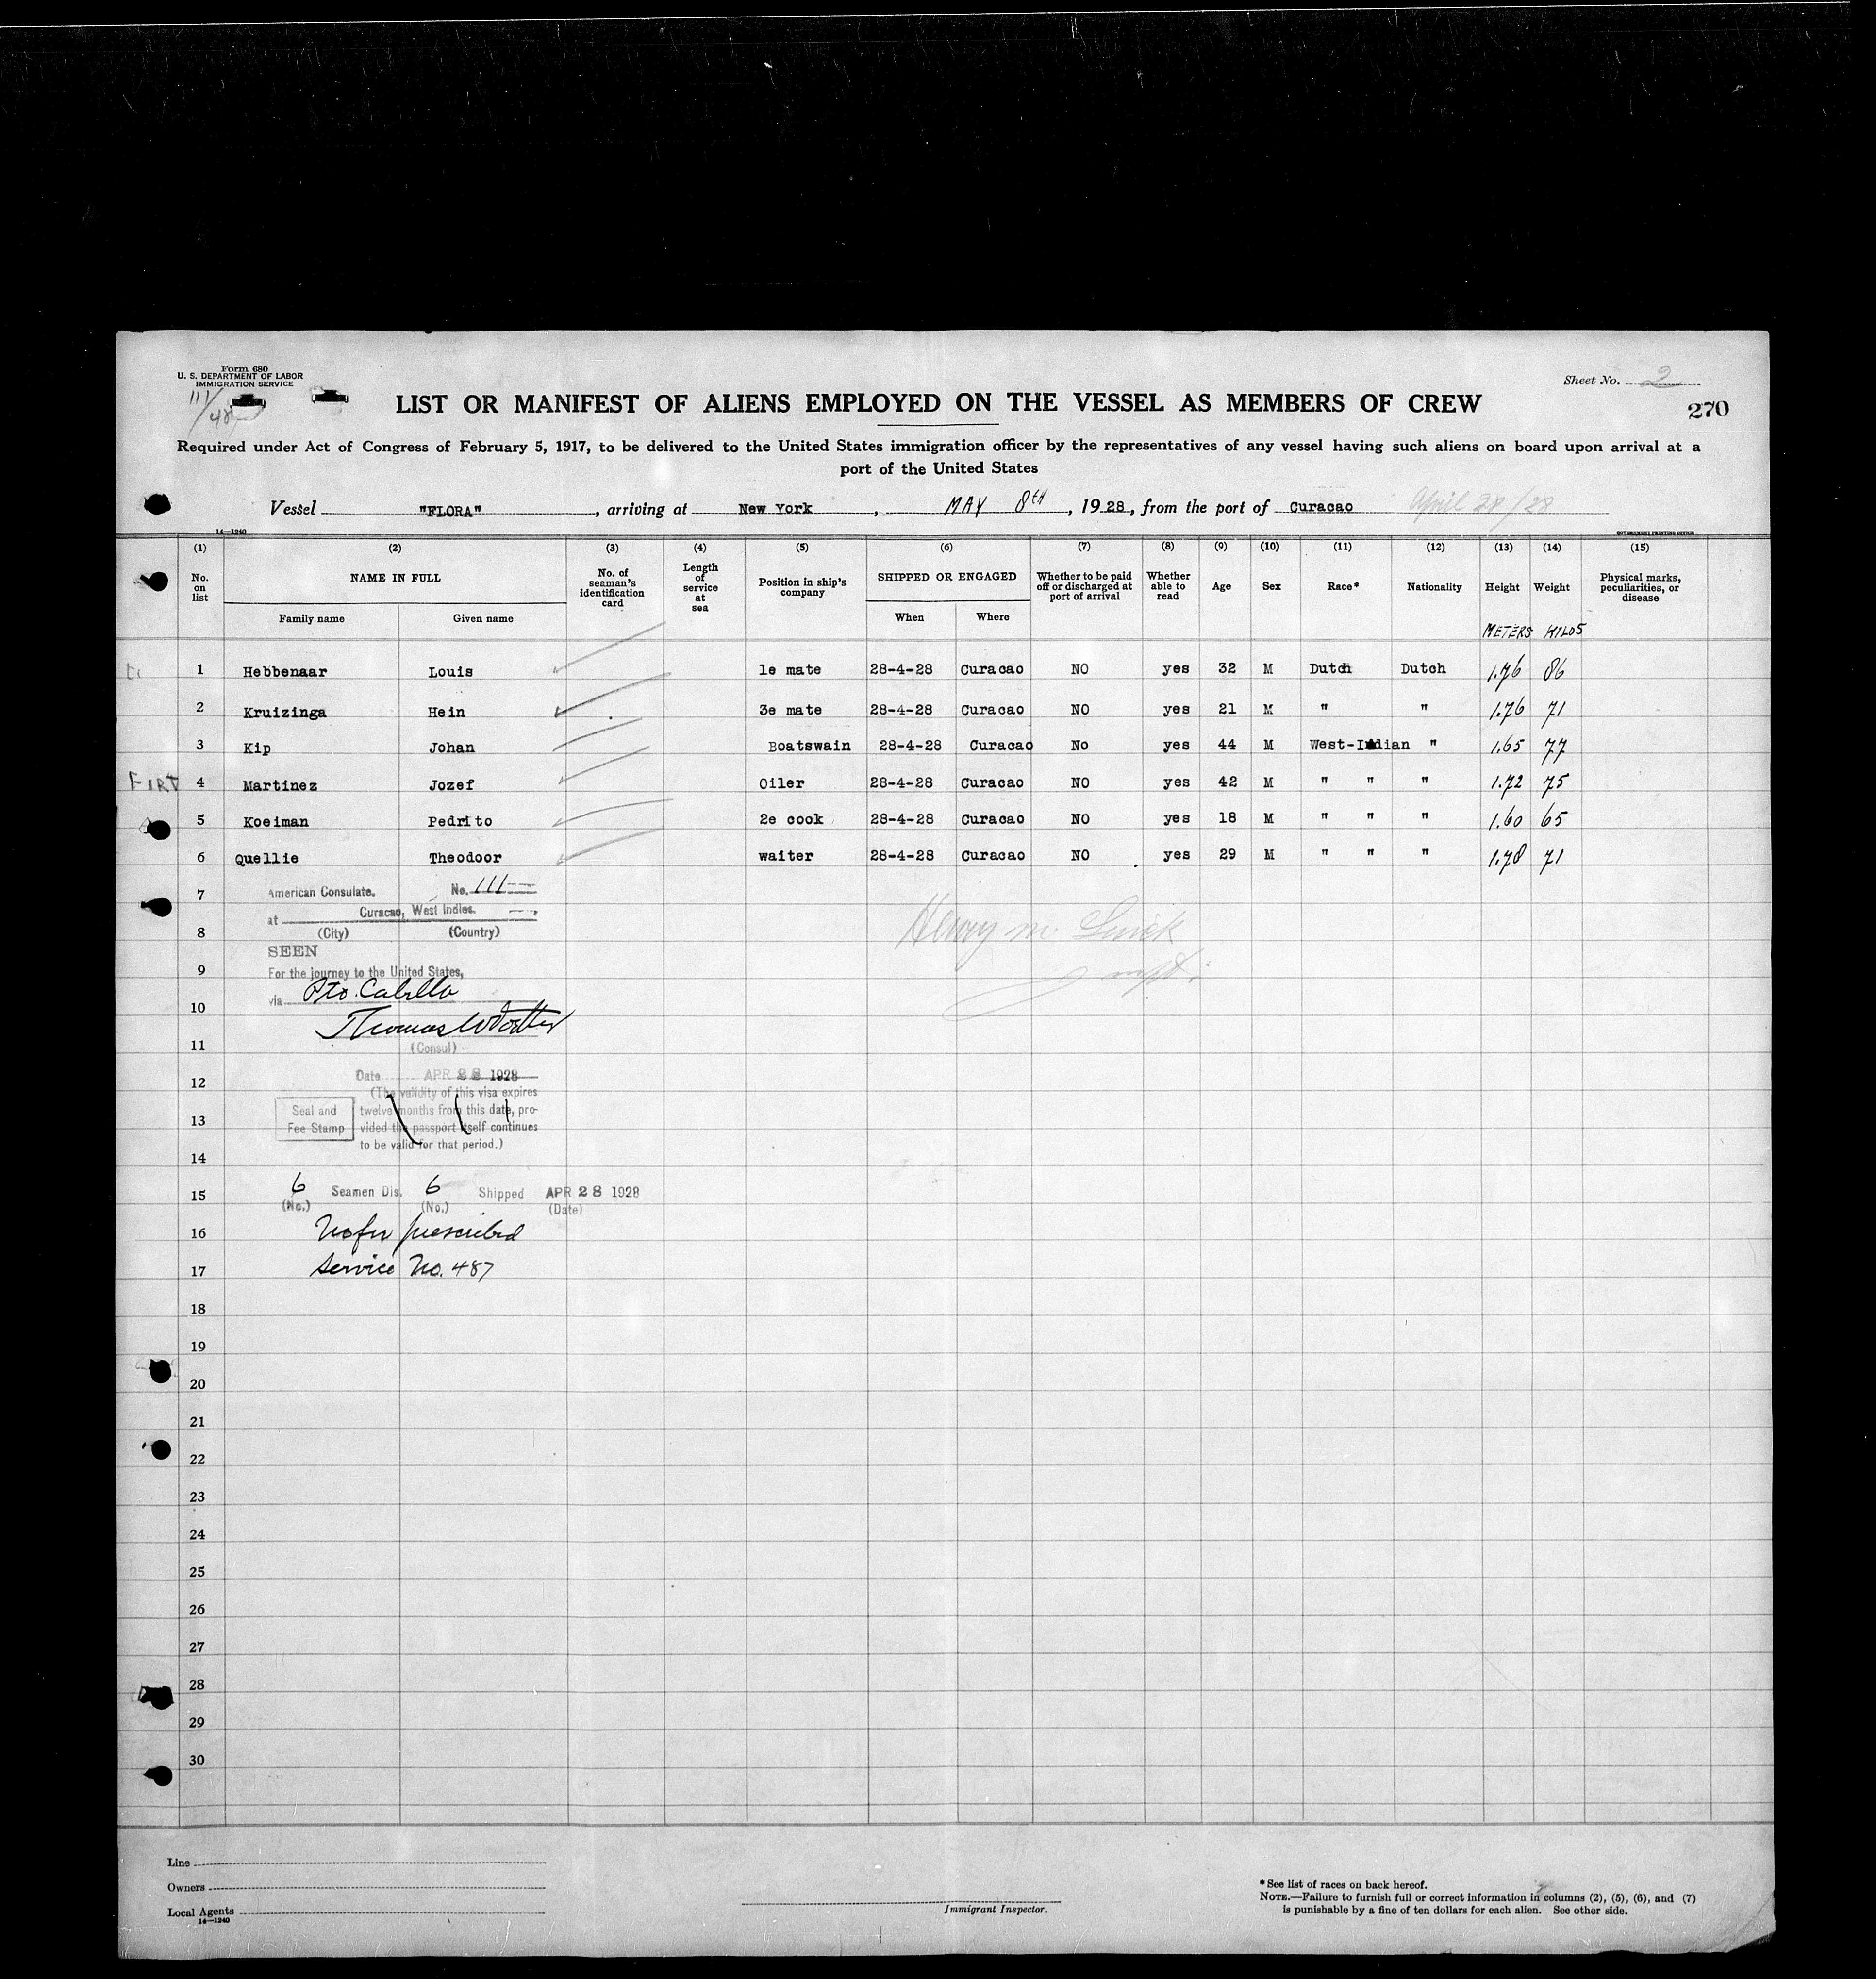 Form 680
U. S. DEPARTMENT OF LABOR
IMMIGRATION SERVICE
111/48
Sheet No. 2
270
LIST OR MANIFEST OF ALIENS EMPLOYED ON THE VESSEL AS MEMBERS OF CREW
Required under Act of Congress of February 5, 1917, to be delivered to the United States immigration officer by the representatives of any vessel having such aliens on board upon arrival at a
port of the United States
Vessel "FLORA", arriving at New York, MAY 8th, 1928, from the port of Curacao April 28/28
14—1240 GOVERNMENT PRINTING OFFICE
(1) (2) (3) (4) (5) (6) (7) (8) (9) (10) (11) (12) (13) (14) (15)
No. on list NAME IN FULL No. of seaman's identification card Length of service at sea Position in ship's company SHIPPED OR ENGAGED Whether to be paid off or discharged at port of arrival Whether able to read Age Sex Race* Nationality Height Weight Physical marks, peculiarities, or disease
Family name Given name When Where METERS KILOS
1 Hebbenaar Louis 1e mate 28-4-28 Curacao NO yes 32 M Dutch Dutch 1.76 86
2 Kruizinga Hein 3e mate 28-4-28 Curacao NO yes 21 M " " 1.76 71
3 Kip Johan Boatswain 28-4-28 Curacao No yes 44 M West-Indian " 1.65 77
4 Martinez Jozef Oiler 28-4-28 Curacao NO yes 42 M " " " 1.72 75
5 Koeiman Pedrito 2e cook 28-4-28 Curacao NO yes 18 M " " " 1.60 65
6 Quellie Theodoor waiter 28-4-28 Curacao NO yes 29 M " " " 1.78 71
7 American Consulate. No. 111
at Curacao, West Indies.
8 (City) (Country)
SEEN
9 For the journey to the United States,
via Pto. Cabello
10
11 (Consul)
12 Date APR 28 1928
(The validity of this visa expires
13 Seal and Fee Stamp twelve months from this date, provided the passport itself continues
to be valid for that period.)
14
15 6 Seamen Dis. 6 Shipped APR 28 1928
(No.) (No.) (Date)
16 No fee prescribed
17 Service No. 487
18
19
20
21
22
23
24
25
26
27
28
29
30
Line
Owners
Local Agents
14—1240
Immigrant Inspector.
* See list of races on back hereof.
NOTE.—Failure to furnish full or correct information in columns (2), (5), (6), and (7)
is punishable by a fine of ten dollars for each alien. See other side.